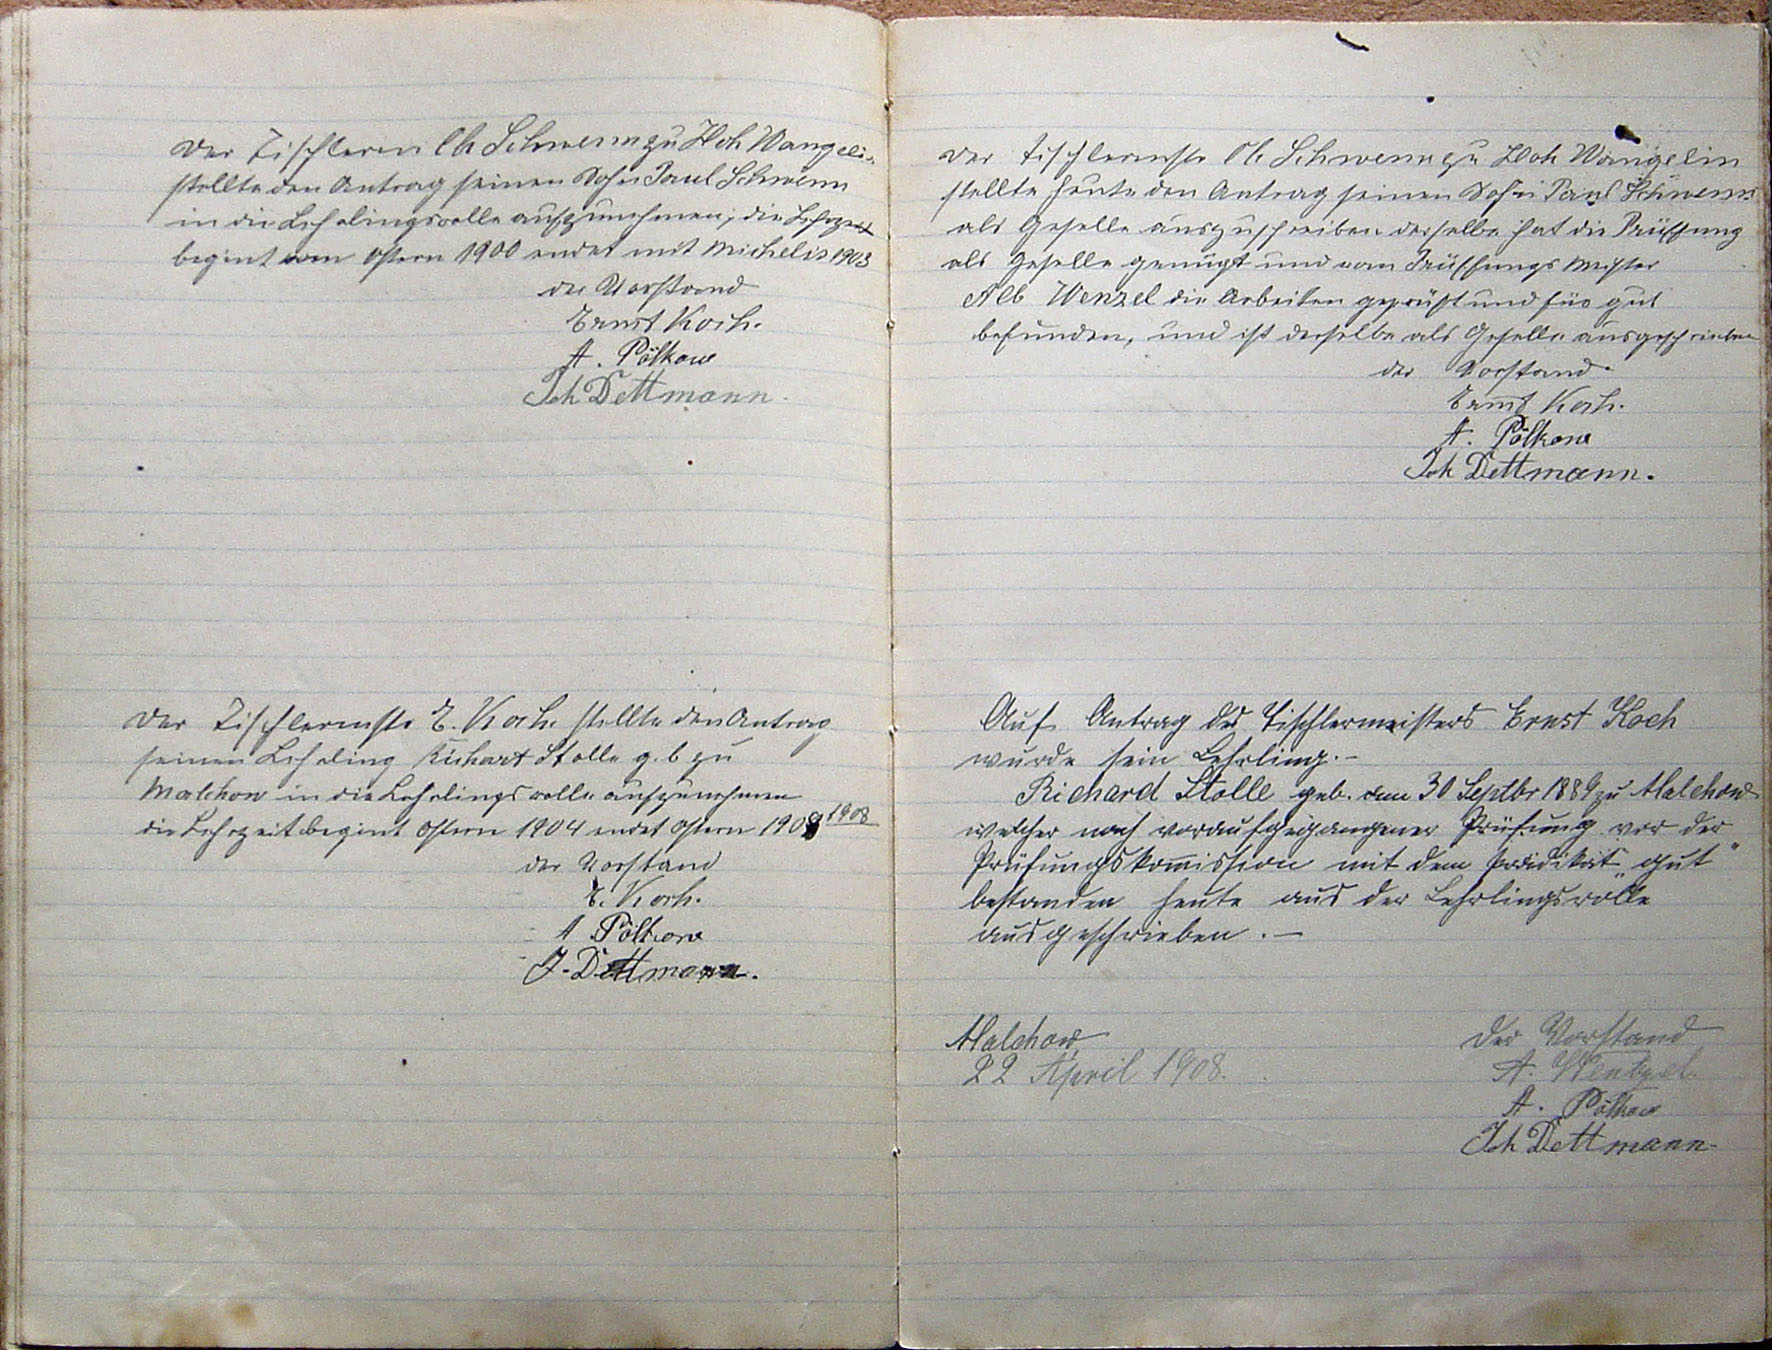 Der Tischlerm Ch Schwenn zu Hoh Wangeli-
stellte den Antrag seinen Sohn Paul Schwenn
in die Lehrlingsrolle aufzunehmen, die Lehrzeit
begint von Ostern 1900 endet mit Michelis 1903
der Vorstand
Ernst Koch.
A. Pölkow
Joh Dettmann.
Der Tischlermstr E. Koch stellte den Antrag
seinen Lehrling Richart Stolle geb zu
Malchow in die Lehrlingsrolle aufzunehmen
die Lehrzeit begint Ostern 1904 endet Ostern 1908 1908
der Vorstand
E. Koch.
A Pölkow
J. Dettmann.
Der Tischlermstr Ch Schwenn zu Hoh Wangelin
stellte heute den Antrag seinen Sohn Paul Schwenn
als Geselle auszuschreiben derselbe hat die Prüffung
als Geselle genügt und vom Prüffungs Meister
Alb Wenzel die Arbeiten geprüft und für gut
befunden, und ist derselbe als Geselle ausgeschrieben
der Vorstand.
Ernst Koch.
A. Pölkow
Joh Dettmann.
Auf Antrag des Tischlermeisters Ernst Koch
wurde sein Lehrling.-
Richard Stolle geb. am 30 Septbr 1889 zu Malchow
welcher nach voraufgegangener Prüfung vor der
Prüfungskommission mit dem Prädikat "gut"
bestanden heute aus der Lehrlingsrolle
ausgeschrieben.-
Malchow
22 April 1908.
Der Vorstand
A. Wentzel.
A. Pölkow
Joh Dettmann-